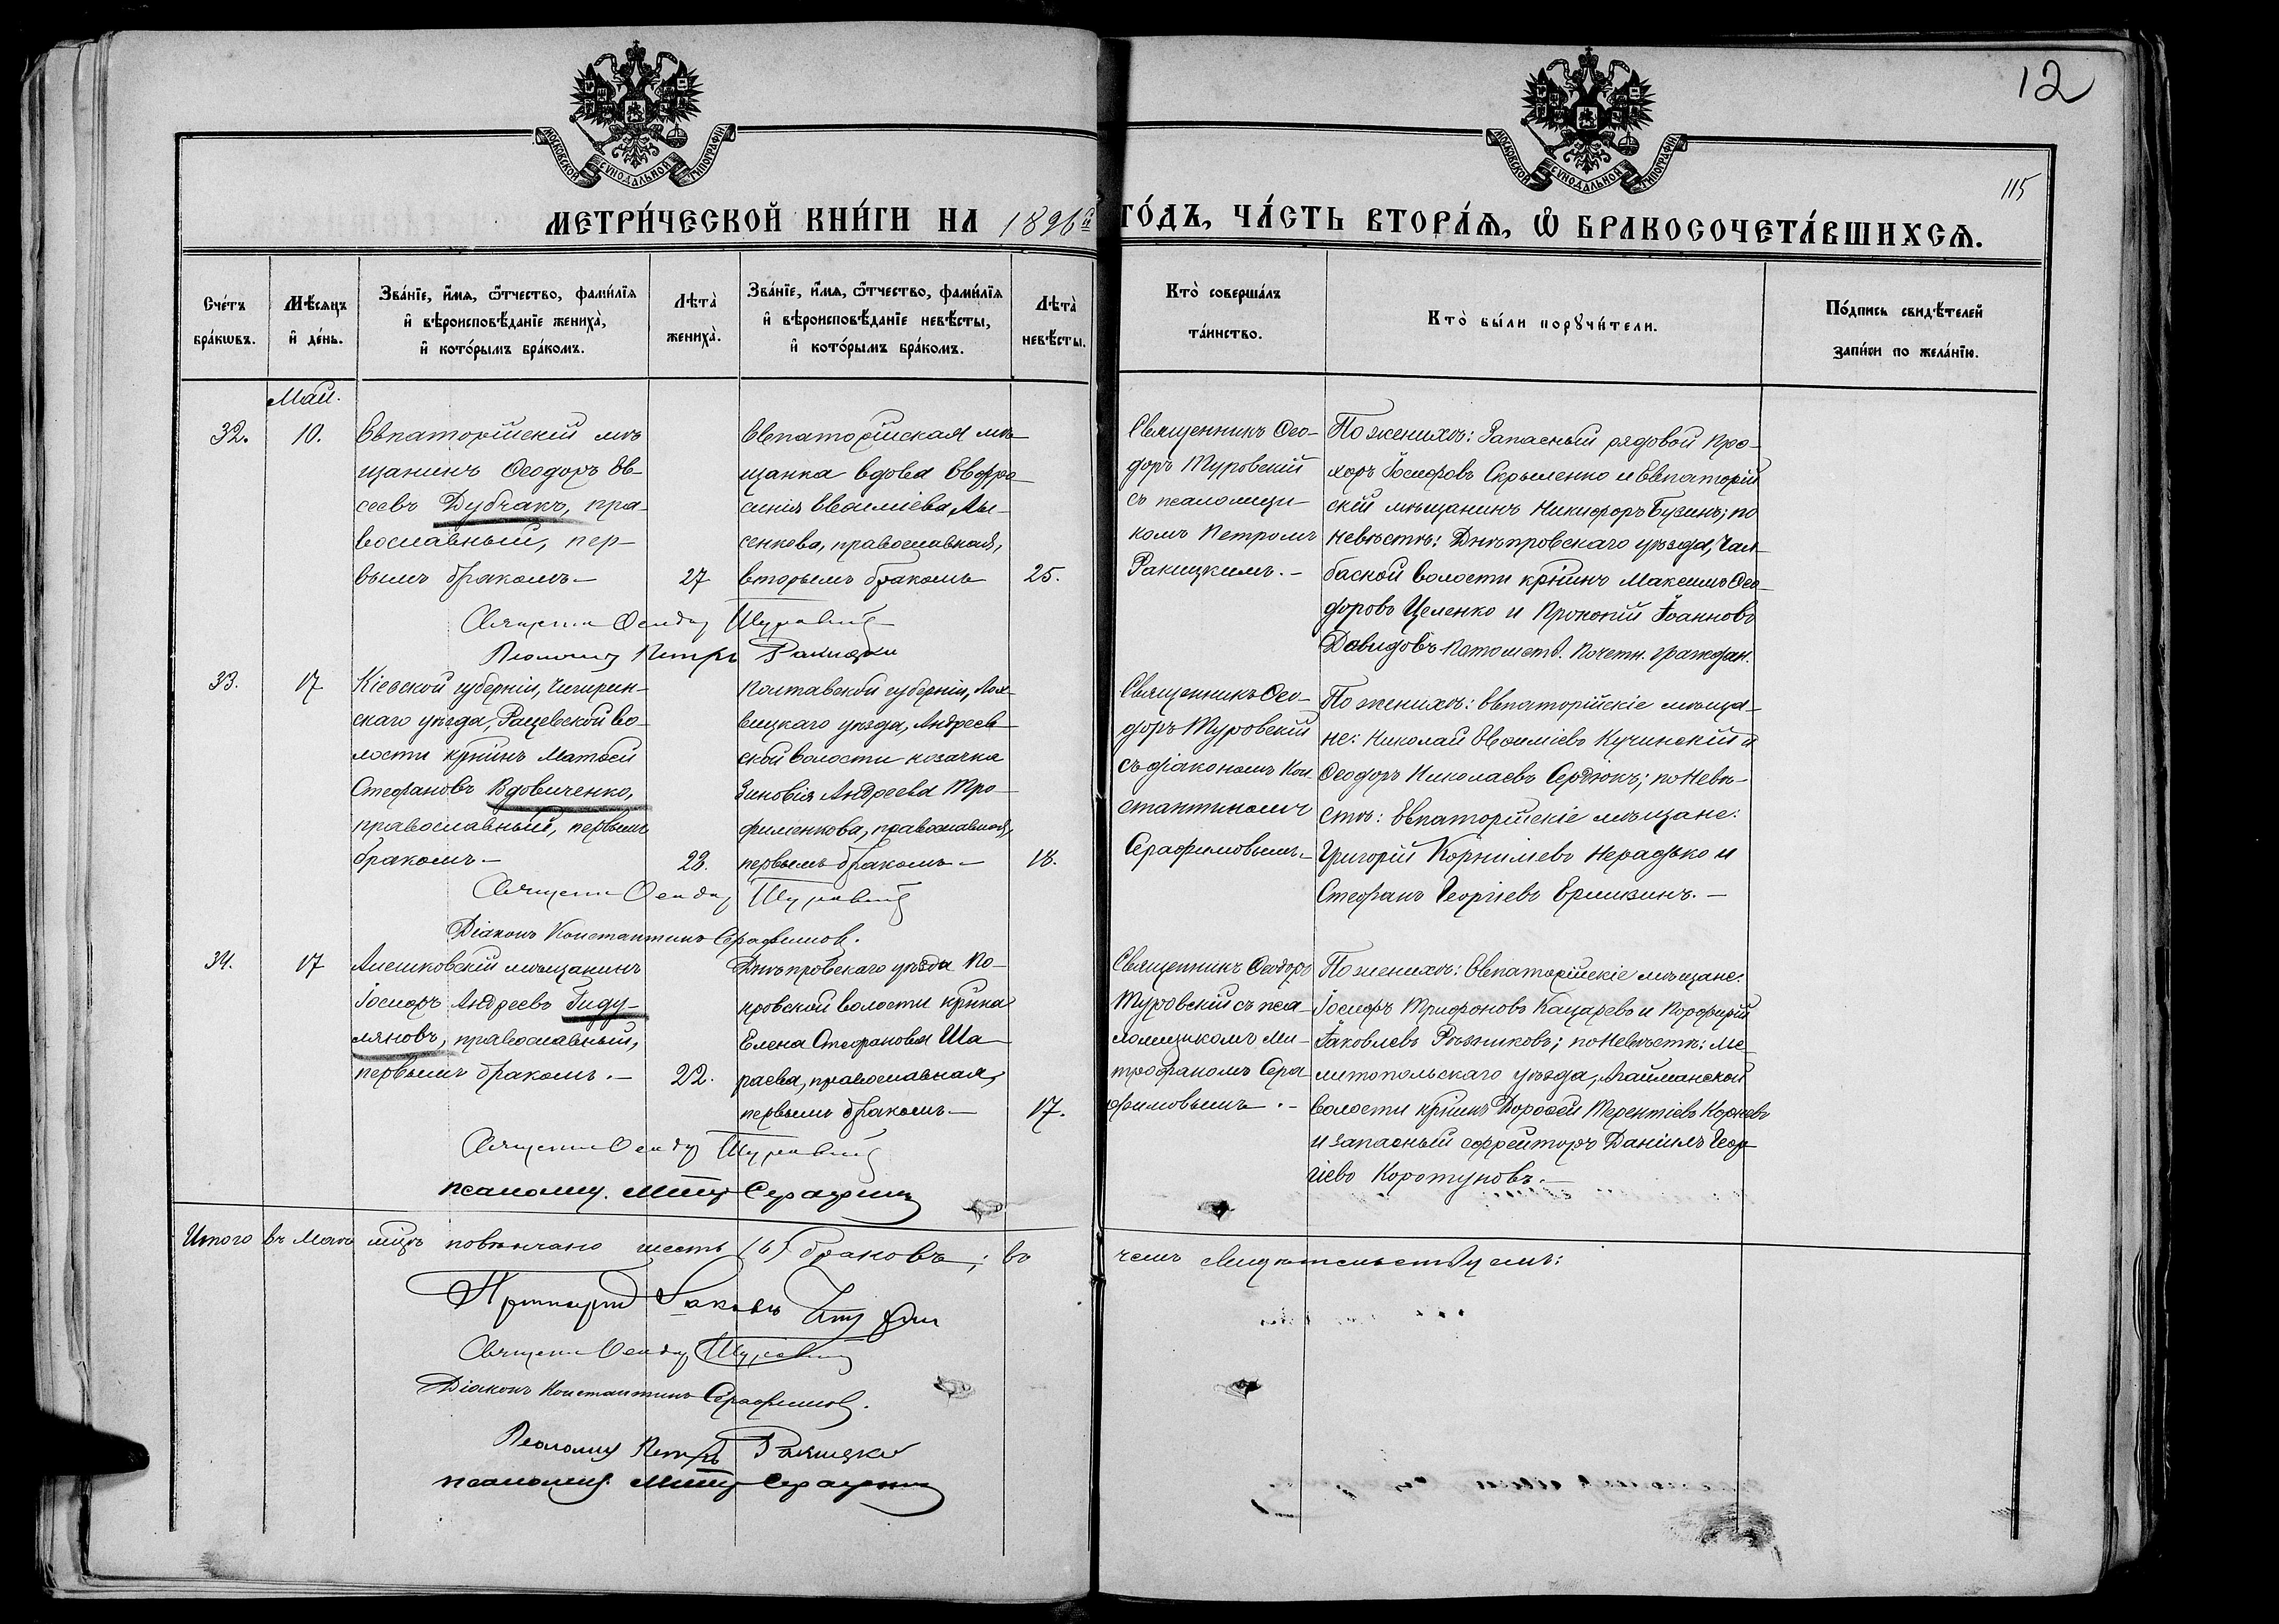 12
115
МОСКОВСКОЙ СѴНОДАЛЬНОЙ ТИПОГРАФІИ
МОСКОВСКОЙ СѴНОДАЛЬНОЙ ТИПОГРАФІИ
МЕТРИ́ЧЕСКОЙ КНИ́ГИ НА 1896й ГО́ДЪ, ЧА́СТЬ ВТОРА́Ѧ, Ѽ БРАКОСОЧЕТА́ВШИХСѦ.
Сче́тъ
бра́кѡвъ.
Мѣ́сяцъ
и҆ де́нь.
Зва́нїе, и҆́мя, ѻ҆́тчество, фами́лїя
и҆ вѣроисповѣ́данїе жениха̀,
и҆ кото́рымъ бра́комъ.
Лѣта̀
жениха̀.
Зва́нїе, и҆́мя, ѻ҆́тчество, фами́лїя
и҆ вѣроисповѣ́данїе невѣ́сты,
и҆ кото́рымъ бра́комъ.
Лѣта̀
невѣ́сты.
Кто̀ соверша́лъ
та́инство.
Кто̀ бы́ли порꙋчи́тели.
По́дпись свидѣ́телей
за́писи по жела́нїю.
Май.
32.
10.
Евпаторійскій мѣ-
щанинъ Ѳеодоръ Ев-
сеевъ Дубчакъ, пра-
вославный, пер-
вымъ бракомъ.-
27
Евпаторійская мѣ-
щанка вдова Евфро-
синія Евѳиміева Лы-
сенкова, православная,
вторымъ бракомъ
25.
Священникъ Ѳео-
доръ Туровскій
съ псаломщи-
комъ Петромъ
Ракицкимъ.-
По женихѣ: Запасный рядовой Про-
хоръ Іосифовъ Скрыленко и Евпаторій-
скій мѣщанинъ Никифоръ Бузинъ; по
невѣстѣ: Днѣпровскаго уѣзда, Чал-
баской волости кр-нинъ Максимъ Ѳео-
доровъ Целенко и Прокопій Іоанновъ
Давидовъ потомств. почетн. граждан.
Петръ Ракицкій
33.
17
Кіевской губерніи, Чигирин-
скаго уѣзда, Рацевской во-
лости кр-нинъ Матѳей
Стефановъ Вдовиченко,
православный, первымъ
бракомъ-
23.
Полтавской губерніи, Лох-
вицкаго уѣзда, Андреев-
ской волости козачка
Зиновія Андреева Тро-
фименкова, православная,
первымъ бракомъ.-
18.
Священникъ Ѳео-
доръ Туровскій
съ діакономъ Кон-
стантиномъ
Серафимовымъ.-
По женихѣ: Евпаторійскіе мѣща-
не: Николай Евѳиміевъ Кучинскій и
Ѳеодоръ Николаевъ Сердюкъ; по невѣ-
стѣ: Евпаторійскіе мѣщане:
Григорій Корниліевъ Нерадько и
Стефанъ Георгіевъ Ермизинъ.-
Діаконъ Константинъ Серафимов.
34.
17
Алешковскій мѣщанинъ
Іосифъ Андреевъ Гиду-
ляновъ, православный,
первымъ бракомъ.-
22.
Днѣпровскаго уѣзда По-
кровской волости кр-нка
Елена Стефанова Ша-
раева, православная,
первымъ бракомъ.-
17.
Священникъ Ѳеодоръ
Туровскій съ пса-
ломщикомъ Ми-
трофаномъ Сера-
фимовымъ.-
По женихѣ: Евпаторійскіе мѣщане:
Іосифъ Трифоновъ Кацаревъ и Порфирій
Іаковлевъ Рѣзниковъ; по невѣстѣ: Ме-
литопольскаго уѣзда, Агайманской
волости кр-нинъ Дороѳей Терентіевъ Корневъ
и запасный ефрейторъ Даніилъ Геор-
гіевъ Коротуновъ.-
Итого въ Маѣ мцѣ повѣнчано шесть (6) браковъ; въ чемъ свидѣтельствуемъ:
Діаконъ Константинъ Серафимов.
Петръ Ракицкій